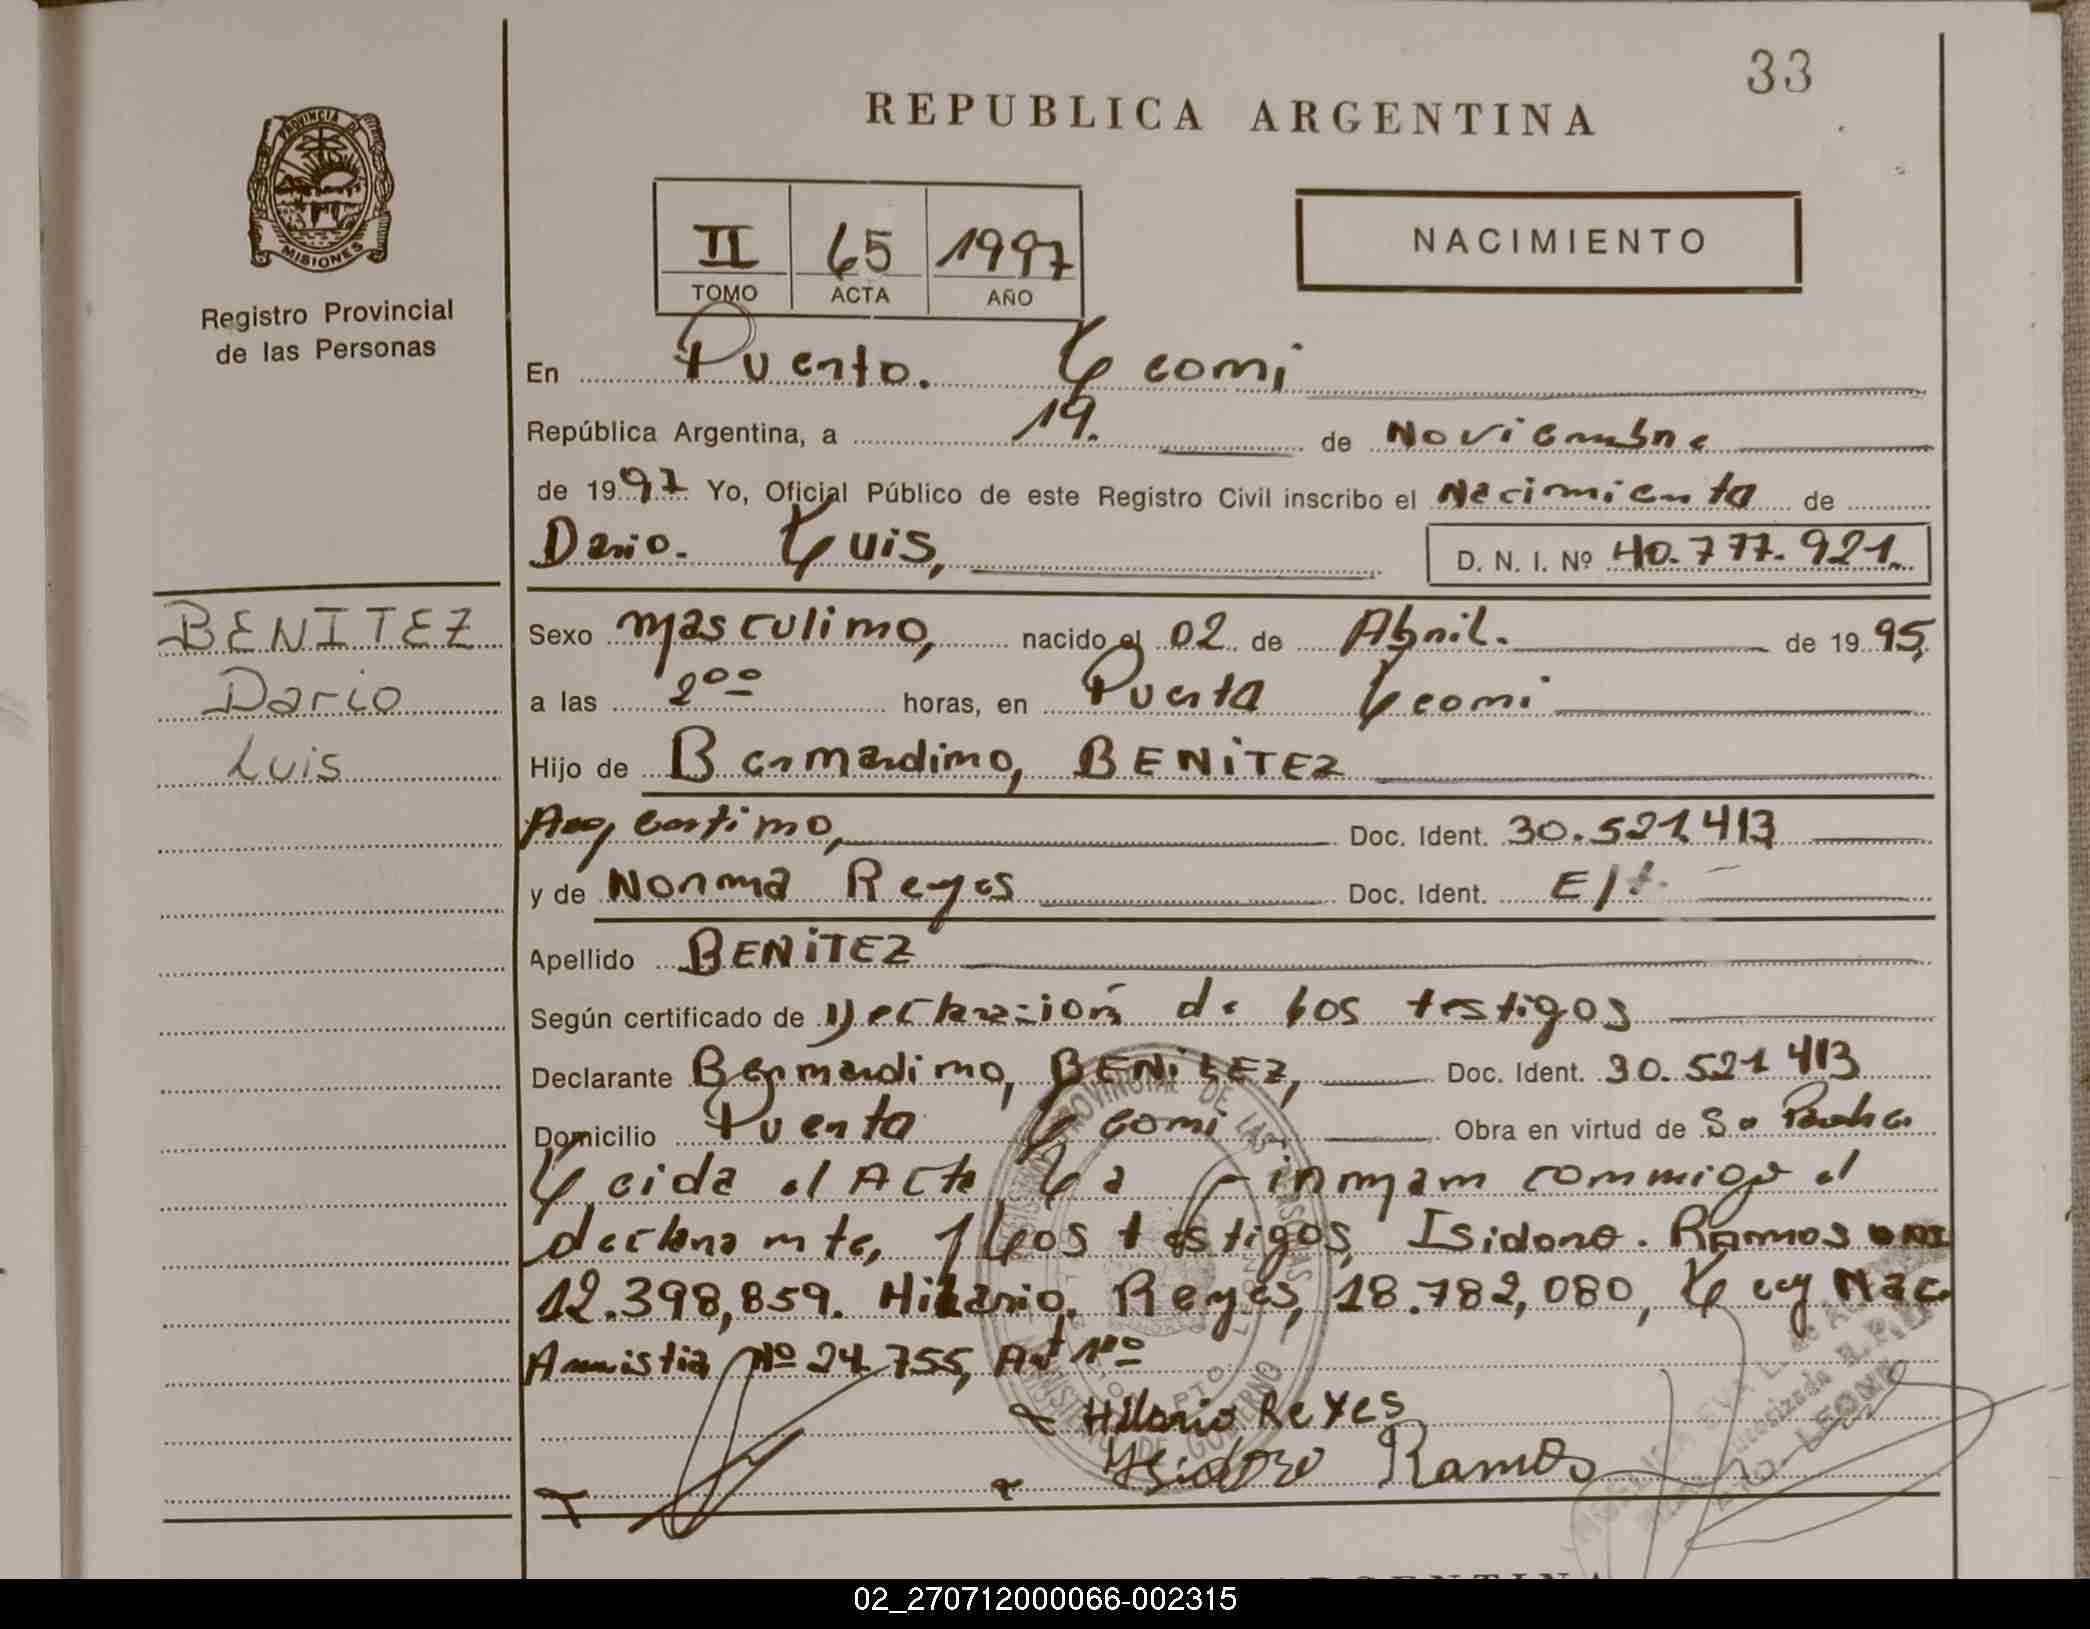 33
REPUBLICA ARGENTINA
PROVINCIA DE
MISIONES
Registro Provincial
de las Personas
II 65 1997
TOMO ACTA AÑO
NACIMIENTO
En Puerto. Leoni
República Argentina, a 19. de Noviembre
de 1997 Yo, Oficial Público de este Registro Civil inscribo el Nacimiento de
Dario. Luis,
D. N. I. Nº 40.777.921
BENITEZ
Dario
Luis
Sexo masculino, nacido el 02 de Abril. de 1995,
a las 2oo horas, en Puerto Leoni
Hijo de Bernardino, BENiTEZ
Argentino, Doc. Ident. 30.521.413
y de Norma Reyes Doc. Ident. E/t.
Apellido BENiTEZ
Según certificado de Declaración de los testigos
Declarante Bernardino, BENiTEZ, Doc. Ident. 30.521 413
Domicilio Puerto Leoni Obra en virtud de Su Padre.
Leida el Acta La Firman conmigo el
declarante, y Los testigos Isidoro. Ramos DNI
12.398,859. Hilario, Reyes, 18.782,080, Ley Nac.
Amnistia Nº 24.755, Art 1ro
Hilario Reyes
Ysidoro Ramos
PROVINCIAL DE LAS PERSONAS
MINISTERIO DE GOBIERNO
PTO. LEONI
ARGENTINA
02_270712000066-002315